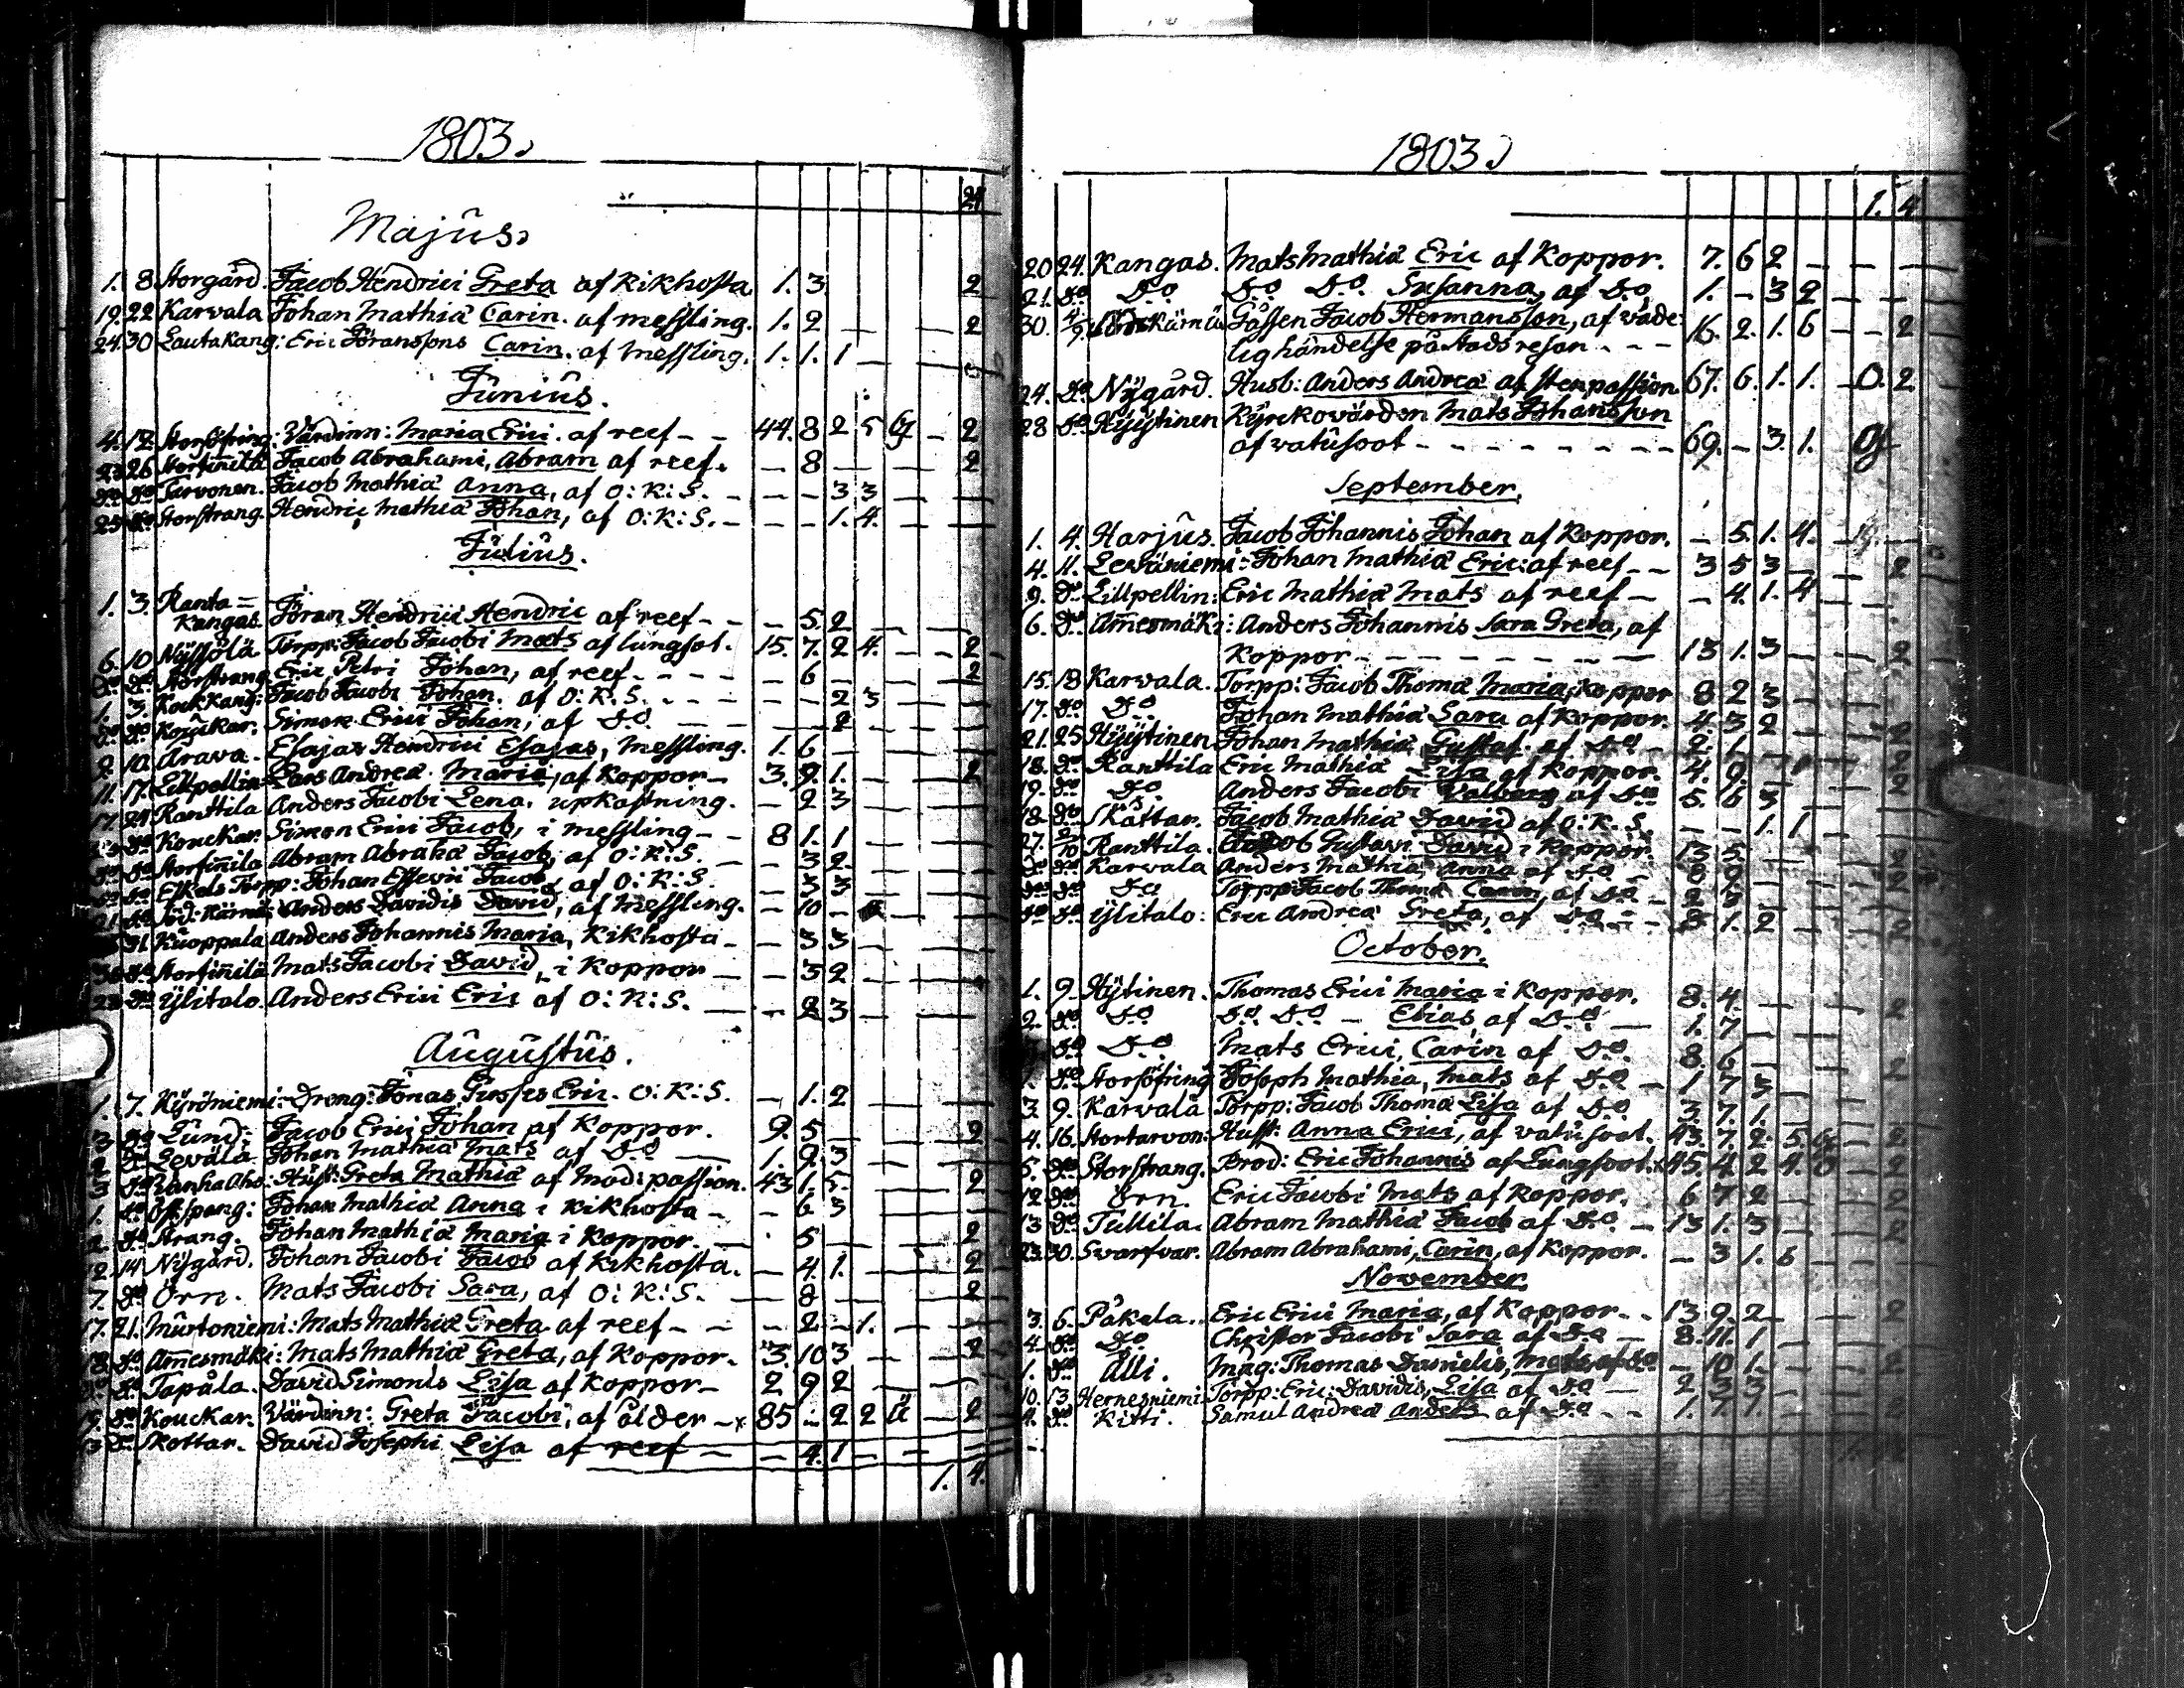 1803.
24
Majus
1. 8 Storgård. Jacob Hendrici Greta af Kikhosta 1. 3 2
19. 22 Karvala Johan Mathiæ Carin. af messling. 1. 2 — — 2
24. 30 Lautakang: Eric Göranssons Carin. af messling. 1. 1. 1 —
Junius.
4. 12 Värdinn: Maria Erici. af reef - - 44. 8 2 5 G — 2
23 26 Storfinnilä Jacob Abrahami, Abram af reef. — 8 — — 2
Do Do Tarvonen. Jacob Mathiæ Anna, af O: K: S. - — — 3 3 — —
25 Do Storstrang. Hendric Mathiæ Johan, af O: K: S. - — — 1. 4. — —
Julius.
1. 3. Ranta=
Kangas. Göran Hendrici Hendric af reef - - — 5. 2 — —
6. 10 Torpp: Jacob Jacobi Mats af lungsot. 15. 7. 2 4. — — 2
Do Do Storstrang Eric Petri Johan, af reef - - - - — 6 — — 2
1. 3. Kackkang: Jacob Jacobi Johan. af O: K: S. - - - — — 2 3 — —
Do Do Koukar. Simon Erici Johan, af Do — — 2 — —
9. 10. Arava. Esajas Hendrici Esajas, Messling. 1. 6 — — —
11. 17. Lillpellin Lars Andreæ Maria, af Koppor - 3. 9. 1. — — 2
17. 24 Ranttila Anders Jacobi Lena, upkastning. — 2 3 — —
Do Kouckar. Simon Erici Jacob, i messling - - 8 1. 1 — —
Do Do Storfinnila Abram Abrahā Jacob, af O: K: S. — — 3 2 — —
Do Do Johan Jacob, af O: K: S. — — 3 3 — —
21. Do Anders Davidis David, af Messling. — 10 — —
31. Kuoppala Anders Johannis Maria, Kikhosta - — 3 3 — —
30 Do Storfinnilä Mats Jacobi David, i Koppor — — 3 2 — —
Do Ylitalo. Anders Erici Eric af O: K: S. — — 2 3 — —
Augustus.
1. 7. Kyröniemi: Dreng: Jonas Eric. O: K: S. — 1. 2 — —
3 Do Lund: Jacob Erici Johan af Koppor. 9. 5 — — 2
2 Do Levälä. Johan Mathiæ Mats af Do — 1. 9. 3 — —
3 Do Ranha Aho: Hust: Greta Mathiæ af Mod: passion. 43 1. 5. — — 2
1. Do Johan Mathiæ Anna i Kikhosta - — 6 3 — —
2. Do Strang. Johan Mathiæ Maria i Koppor — 5 — — 2
2. 14 Nygård. Johan Jacobi Jacob af Kikhosta. — 4. 1. — — 2
7. Do Örn. Mats Jacobi Sara, af O: K: S. — 8 — — 2
17. 21. Murtoniemi: Mats Mathiæ Greta af reef - - — 2 - 1. — —
18 Do Ämesmäki: Mats Mathiæ Greta, af Koppor. 3. 10 3 — — 2
Do Do Tapåla. David Simonis Lisa af Koppor - 2 9 2 — —
19. Do Kouckar. Värdinn: Greta Jacobi, af ålder - 85 - 2 2 Ä — 2
13 Do Skottar. David Josephi Lisa af reef — — 4. 1 — —
1. 4.
1803.
1. 4
20 24. Kangas. Mats Mathiæ Eric af Koppor. 7. 6 2 — — —
21. Do Do Do Do Susanna, af Do 1. — 3 2 — —
30. 4/9 Gåssen Jacob Hermansson, af våde
lig händelse på stads resan - - - 16. 2. 1. 6 — — 2
24. Do Nygård. Husb: Anders Andreæ af stenpassion 67. 6. 1. 1. — O. 2
28 Do Hyytinen Kyrckovärden Mats Johansson
af vatusoot - - - - - - - - 69. — 3. 1. Of
September.
1. 4. Harjus. Jacob Johannis Johan af Koppor. — 5. 1. 4.
4. 11. Leväniemi: Johan Mathiæ Eric: af reef - - 3 5 3 — — 2
9. Do Lillpellin: Eric Mathiæ Mats af reef - — 4. 1. 4 — —
6. Do Ämesmäki: Anders Johannis Sara Greta, af
Koppor - - - - - - - 13 1. 3 — — 2
15. 18 Karvala. Torpp: Jacob Thomæ Maria, Koppor 8 2 3 — —
17. Do Do Johan Mathiæ Sara af Koppor. 4. 3 2 — — 2
21. 25 Hyytinen Johan Mathiæ Gustaf. af Do - 2. 1. — — 2
18. Do Ranttila Eric Mathiæ Lisa af Koppor. 4. 9. — — 2
19. Do Do Anders Jacobi Valborg af Do 5. 6 3 — — 2
18. Do Skåttar. Jacob Mathiæ David af O: K: S. — — 1. 1 — —
27. 2/10 Ranttila. Gustavi David i Koppor. 13 5. — — 2
Do Do Karvala Anders Mathiæ Anna af Do - 8 9. — — 2
Do Do Do Torpp: Jacob Thomæ Carin, af Do -
Do Do Ylitalo: Eric Andreæ Greta, af Do - - 3 1. 2 — — 2
October.
1. 9. Hytinen. Thomas Erici Maria i Koppor. 8. 4. — — 2
2. Do Do Do Do — Elias af Do — 1. 7 — —
Do Do Mats Erici, Carin af Do 8. 6 — — 2
1. Do Storsöfring Joseph Mathiæ, Mats af Do - 1 7 3 — —
3. 9. Karvala Torpp: Jacob Thomæ Lisa af Do 3. 7. 1. — —
4. 16. Stortarvon: Hust: Anna Erici, af vatusoot. 43. 7. 2. 5. G — 2
5. Do Storstrang. Brod: Eric Johannis af Lungsoot. 45. 4. 2 4. O — 2
12 Do Örn. Eric Jacobi Mats af Koppor. 6 7 2 — — 2
13 Do Tullila. Abram Mathiæ Jacob af Do - 13 1. 3 — — 2
23 30. Svartvar. Abram Abrahami, Carin, af Koppor. — 3 1. 6 — —
November.
3. 6. Påkala. Eric Erici Maria, af Koppor - - 13 9. 2 — — 2
4. Do Do Christer Jacobi Sara af Do - 8. 11. 1 — —
1. Do Alli. Mag: Thomas Danielis, Mats, af Do - 10 1. — — 2
10. 13 Hernesniemi Torpp: Eric: Davidis, Lisa af Do — 2 3 3 —
Do Kitti. Samul Andreæ Anders af Do - - 1. 7 1